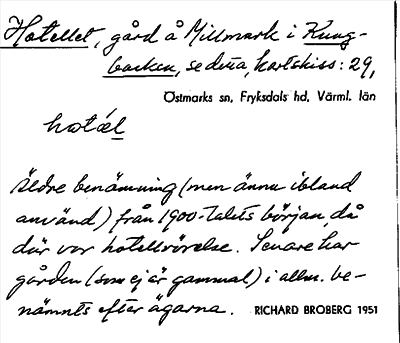 Hotellet, gård å Millmark i Kung-
backen, se detta, kartskiss: 29,
Östmarks sn, Fryksdals hd, Värml. län
hotǽl
Äldre benämning (men ännu ibland
använd) från 1900-talets början, då
där var hotellrörelse. Senare har
gården (som ej är gammal) i allm. be-
nämnts efter ägarna. RICHARD BROBERG 1951